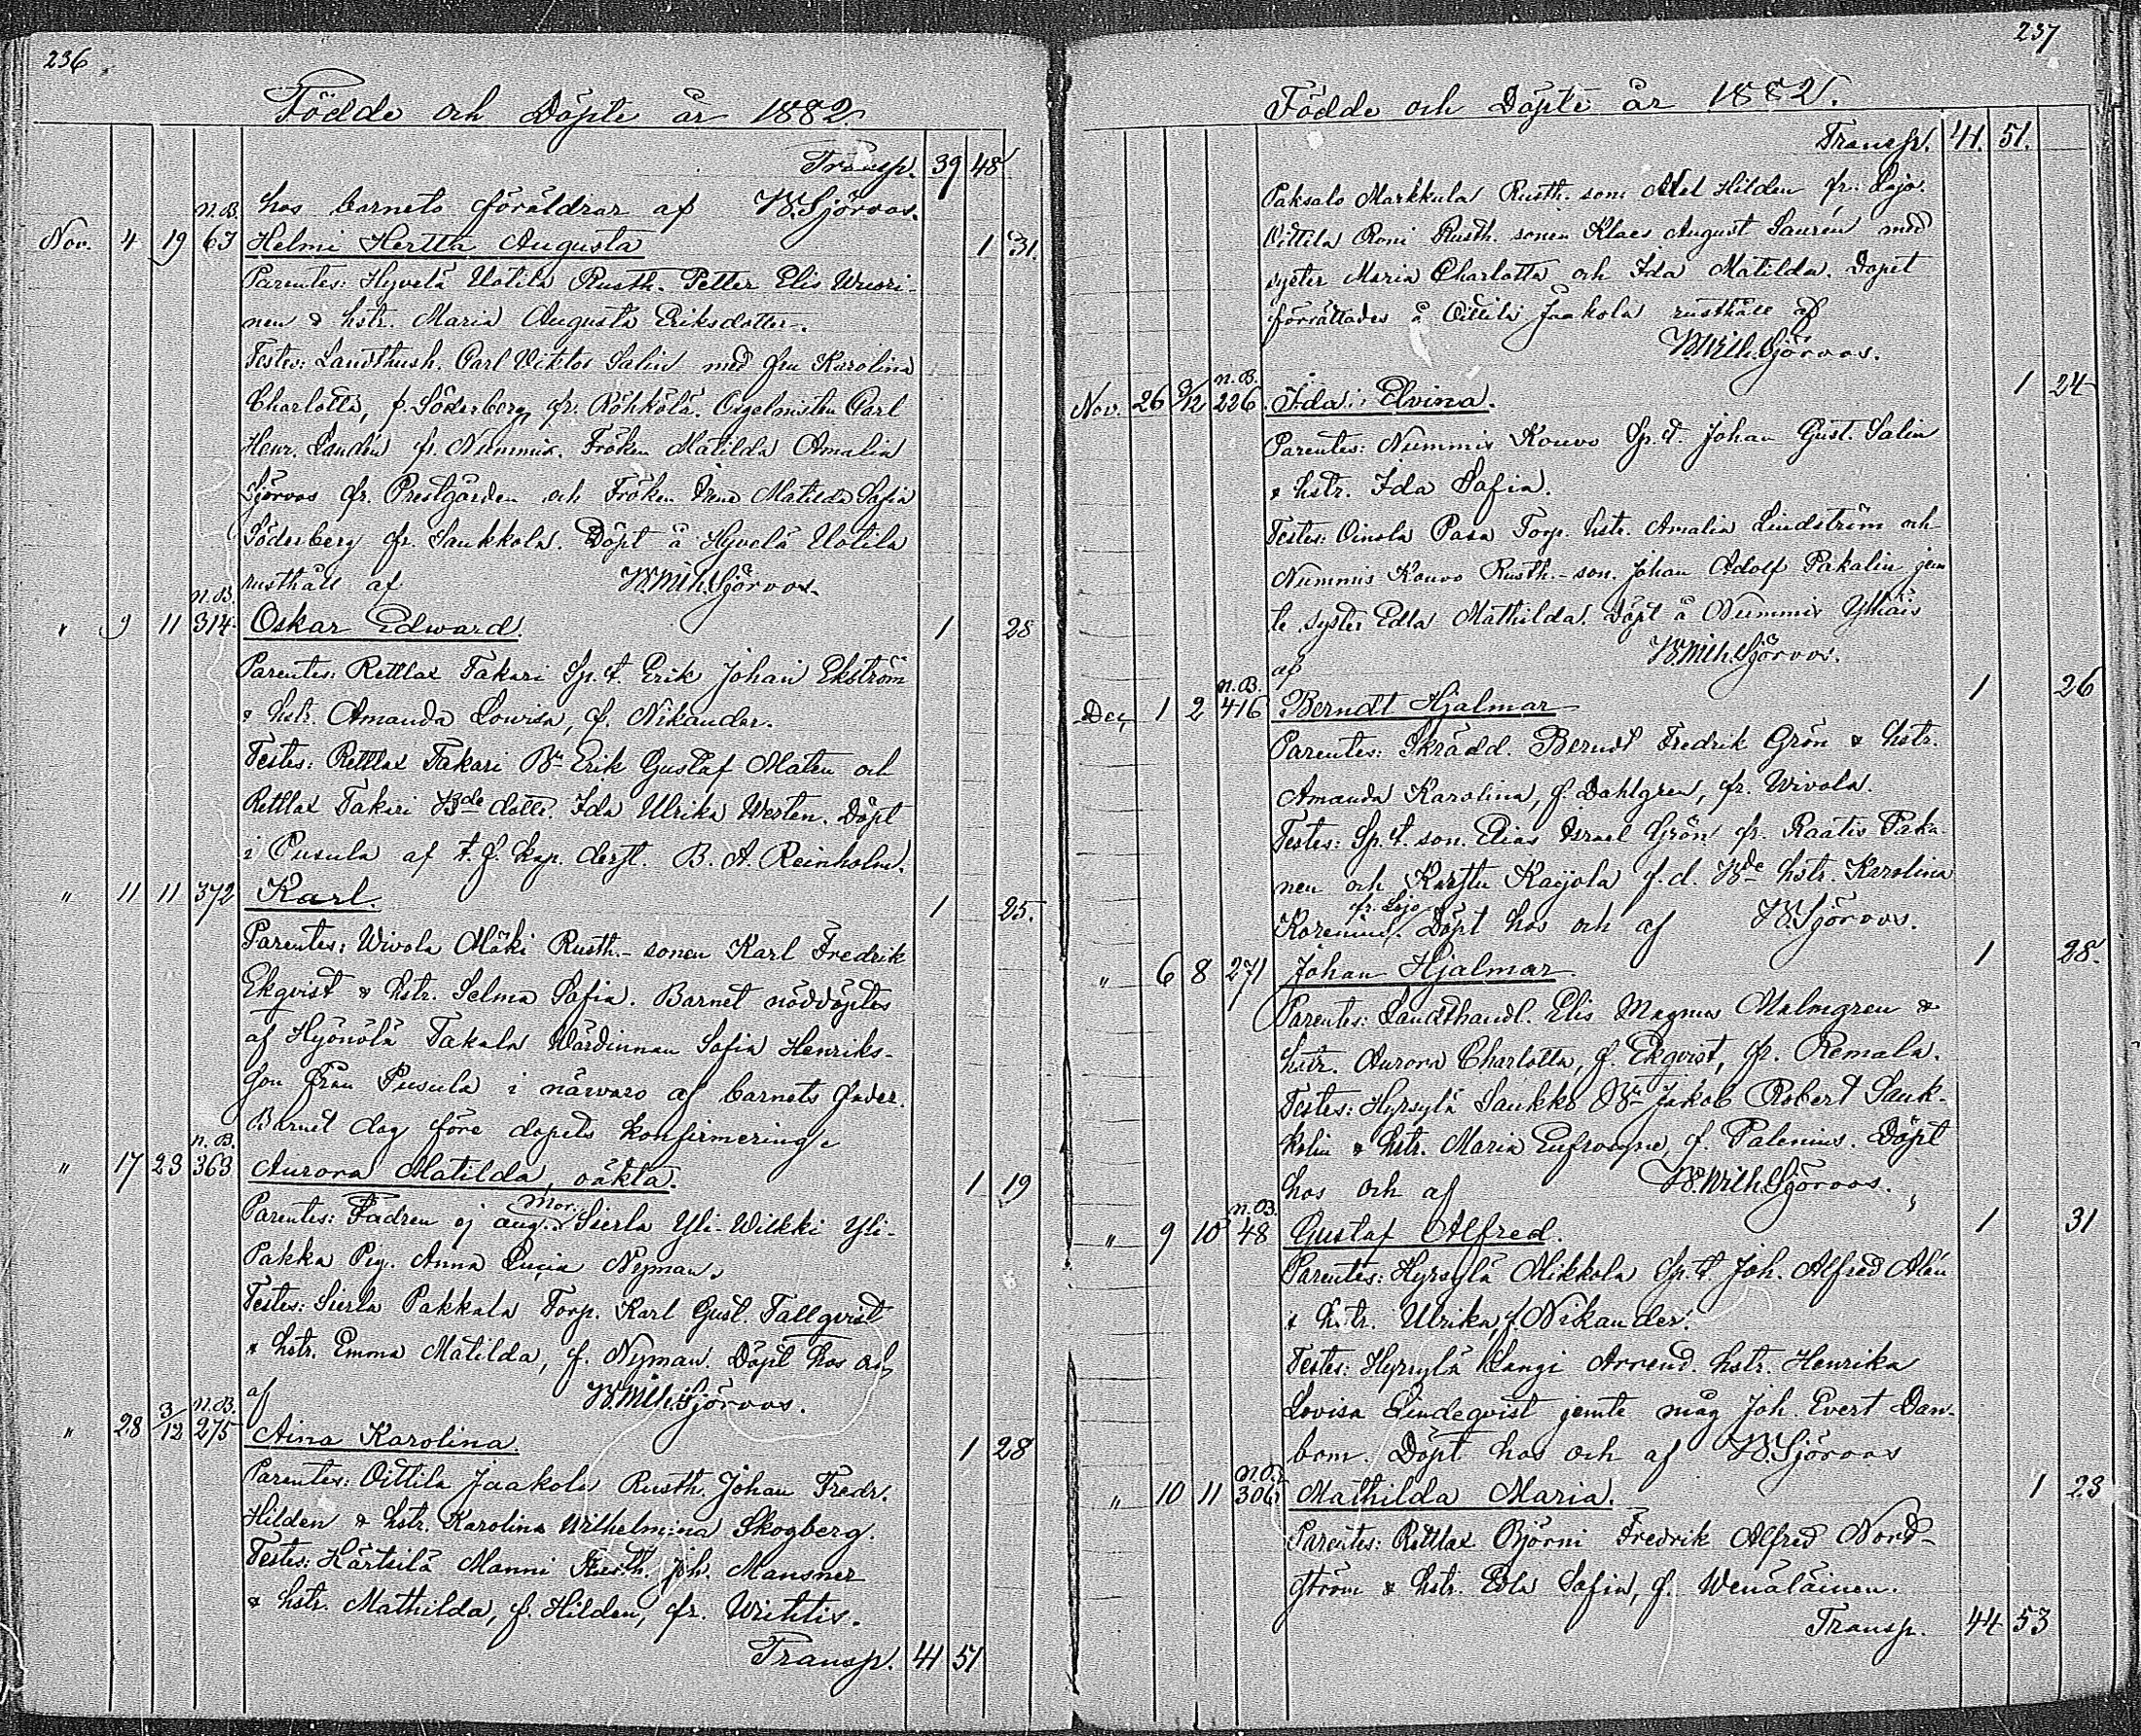 236
Födde och Döpte år 1882
Transp. 39 48
hos barnets föräldrar af W. Sjöroos.
Nov. 4 19 N.B. 63 Helmi Hertta Augusta 1 31.
Parentes: Hyvelä Uotila Rusth. Petter Elis Wuori-
nen & hstr. Maria Augusta Eriksdotter.
Testes: Landthush. Carl Viktor Salin med fru Karolina
Charlotta, f. Söderberg, fr. Röhkölä. Orgelnisten Carl
Henr. Landén fr. Nummis. Fröken Matilda Amalia
Sjöroos fr. Prestgården och Fröken Irene Matilda Sofia
Söderberg fr. Saukkola. Döpt å Hyvelä Uotila
rusthåll af W. Wilh. Sjöroos.
" 9 11 N.B. 314 Oskar Edward. 1 28
Parentes: Rettlax Takari Sp. t. Erik Johan Ekström
& hstr. Amanda Lowisa, f. Nikander.
Testes: Rettlax Takari Bn Erik Gustaf Maten och
Rettlax Takari Bde dottr. Ida Ulrika Westen. Döpt
i Pusula af t. f. kap. derst. B. A. Reinholm.
" 11 11 372 Karl. 1 25.
Parentes: Wivola Mäki Rusth.- sonen Karl Fredrik
Ekqvist & hstr. Selma Sofia. Barnet nöddöptes
af Hyönölä Takala Wärdinnan Sofia Henriks-
son från Pusula i närvaro af barnets fader.
Barnet dog före dopets konfirmering.
" 17 23 N.B. 363 Aurora Matilda, oäkta. 1 19
Parentes: Fadren ej ang. Mor. Sierla Yli-Wilkki Yli-
Pakka Pig. Anna Lucia Nyman.
Testes: Sierla Pakkala Torp. Karl Gust. Tallqvist
& hstr. Emma Matilda, f. Nyman. Döpt hos och
af W. Wilh. Sjöroos.
" 28 3/12 N.B. 275 Aina Karolina 1 28
Parentes: Oittila Jaakola Rusth. Johan Fredr.
Hilden & hstr. Karolina Wilhelmina Skogberg.
Testes: Härtsilä Manni Rusth. Joh. Mansner
& hstr. Mathilda, f. Hilden, fr. Wichtis.
Transp. 41 51
237
Födde och Döpte år 1882.
Transp. 41. 51.
Paksalo Markkula Rusth. son Axel Hilden fr. Lojo.
Oittila Roni Rusth. sonen Klaes August Laurén med
syster Maria Charlotta och Ida Matilda. Dopet
förrättades å Oittila Jaakola rusthåll af
W. Wilh. Sjöroos.
Nov. 26 3/12 N.B. 226 Ida Elvina. 1 24
Parentes: Nummis Kouvo Sp. t. Johan Gust. Salin
& hstr. Ida Sofia.
Testes: Oinola Pasa Torp. hstr. Amalia Lindström och
Nummis Kouvo Rusth.-son. Johan Adolf Pakalin jem
te syster Edla Mathilda. Döpt å Nummis Yhäis
af W. Wilh. Sjöroos.
Dec. 1 2 N.B. 416 Berndt Hjalmar 1 26
Parentes: Skrädd. Berndt Fredrik Grön & hstr.
Amanda Karolina, f. Dahlgren, fr. Wivola.
Testes: Sp. t. son. Elias Israel Grön fr. Raatis Paka-
nen och Karstu Kaijola f. d. Bde hstr. Karolina
Korenius, fr. Lojo. Döpt hos och af W. Sjöroos.
" 6 8 271 Johan Hjalmar 1 28.
Parentes: Landthandl. Elis Magnus Malmgren &
hstr. Aurora Charlotta, f. Ekqvist, fr. Remala.
Testes: Hyrsylä Saukko Bn Jakob Robert Sauk-
kolin & hstr. Maria Eufrosyne, f. Palenius. Döpt
hos och af W. Wilh. Sjöroos.
" 9 10 N.B. 48 Gustaf Alfred. 1 31
Parentes: Hyrsylä Mikkola Sp. t. Joh. Alfred Alén
& hstr. Ulrika, f. Nikander.
Testes: Hyrsylä Langi Arrend. hstr. Henrika
Lovisa Lindeqvist jemte måg Joh. Evert Dan-
bom. Döpt hos och af W. Sjöroos
" 10 11 N.B. 306 Mathilda Maria. 1 23
Parentes: Rettlax Björni Fredrik Alfred Nord-
ström & hstr. Eva Sofia, f. Wenäläinen.
Transp. 44 53